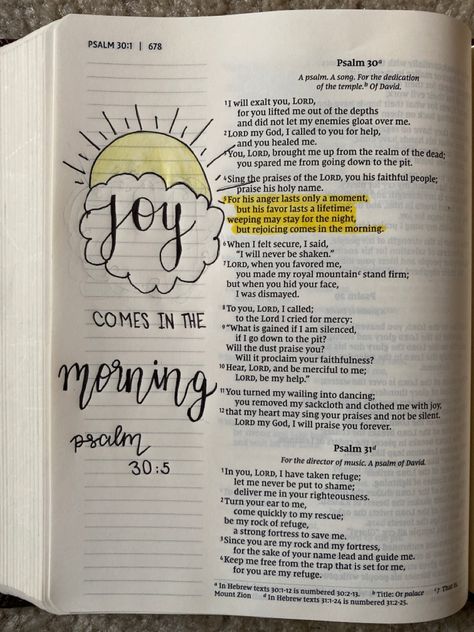 PSALM 30:1 | 678
joy
COMES IN THE
morning
psalm
30:5
Psalm 30ᵃ
A psalm. A song. For the dedication
of the temple.ᵇ Of David.
¹I will exalt you, LORD,
for you lifted me out of the depths
and did not let my enemies gloat over me.
²LORD my God, I called to you for help,
and you healed me.
³You, LORD, brought me up from the realm of the dead;
you spared me from going down to the pit.
⁴Sing the praises of the LORD, you his faithful people;
praise his holy name.
⁵For his anger lasts only a moment,
but his favor lasts a lifetime;
weeping may stay for the night,
but rejoicing comes in the morning.
⁶When I felt secure, I said,
"I will never be shaken."
⁷LORD, when you favored me,
you made my royal mountainᶜ stand firm;
but when you hid your face,
I was dismayed.
⁸To you, LORD, I called;
to the Lord I cried for mercy:
⁹"What is gained if I am silenced,
if I go down to the pit?
Will the dust praise you?
Will it proclaim your faithfulness?
¹⁰Hear, LORD, and be merciful to me;
LORD, be my help."
¹¹You turned my wailing into dancing;
you removed my sackcloth and clothed me with joy,
¹²that my heart may sing your praises and not be silent.
LORD my God, I will praise you forever.
Psalm 31ᵈ
For the director of music. A psalm of David.
¹In you, LORD, I have taken refuge;
let me never be put to shame;
deliver me in your righteousness.
²Turn your ear to me,
come quickly to my rescue;
be my rock of refuge,
a strong fortress to save me.
³Since you are my rock and my fortress,
for the sake of your name lead and guide me.
⁴Keep me free from the trap that is set for me,
for you are my refuge.
ᵃ In Hebrew texts 30:1-12 is numbered 30:2-13. ᵇ Title: Or palace ᶜ 7 That is,
Mount Zion ᵈ In Hebrew texts 31:1-24 is numbered 31:2-25.